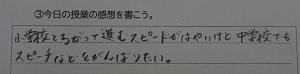 ③今日の授業の感想を書こう。
小学校とちがって進むスピードがはやいけど中学校でも
スピーチなどをがんばりたい。